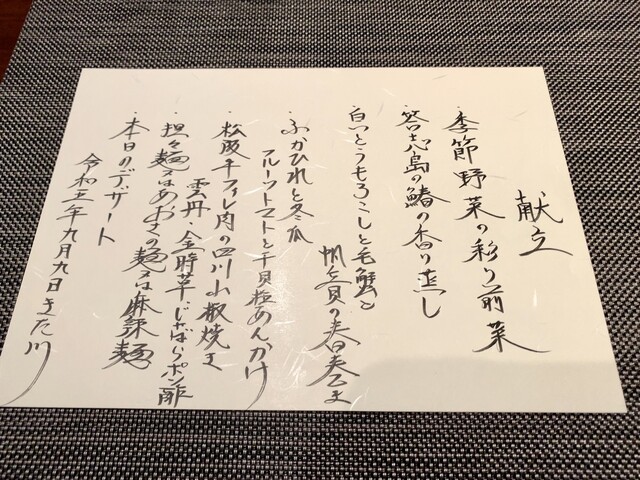 献立
・季節野菜の彩り前菜
・答志島の鰆の香り蒸し
・白いとうもろこしと毛蟹と
帆立貝の春巻き
・ふかひれと冬瓜
フルーツトマトと干貝柱あんかけ
・松阪牛フィレ肉の四川山椒焼き
雲丹・金時草・じゃばらポン酢
・担々麺又はあおさの麺又は麻辣麺
・本日のデザート
令和五年九月九日 きた川